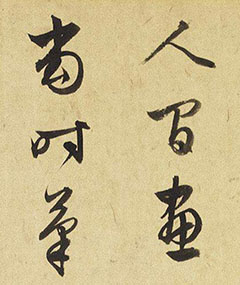 人間畫
當時筆